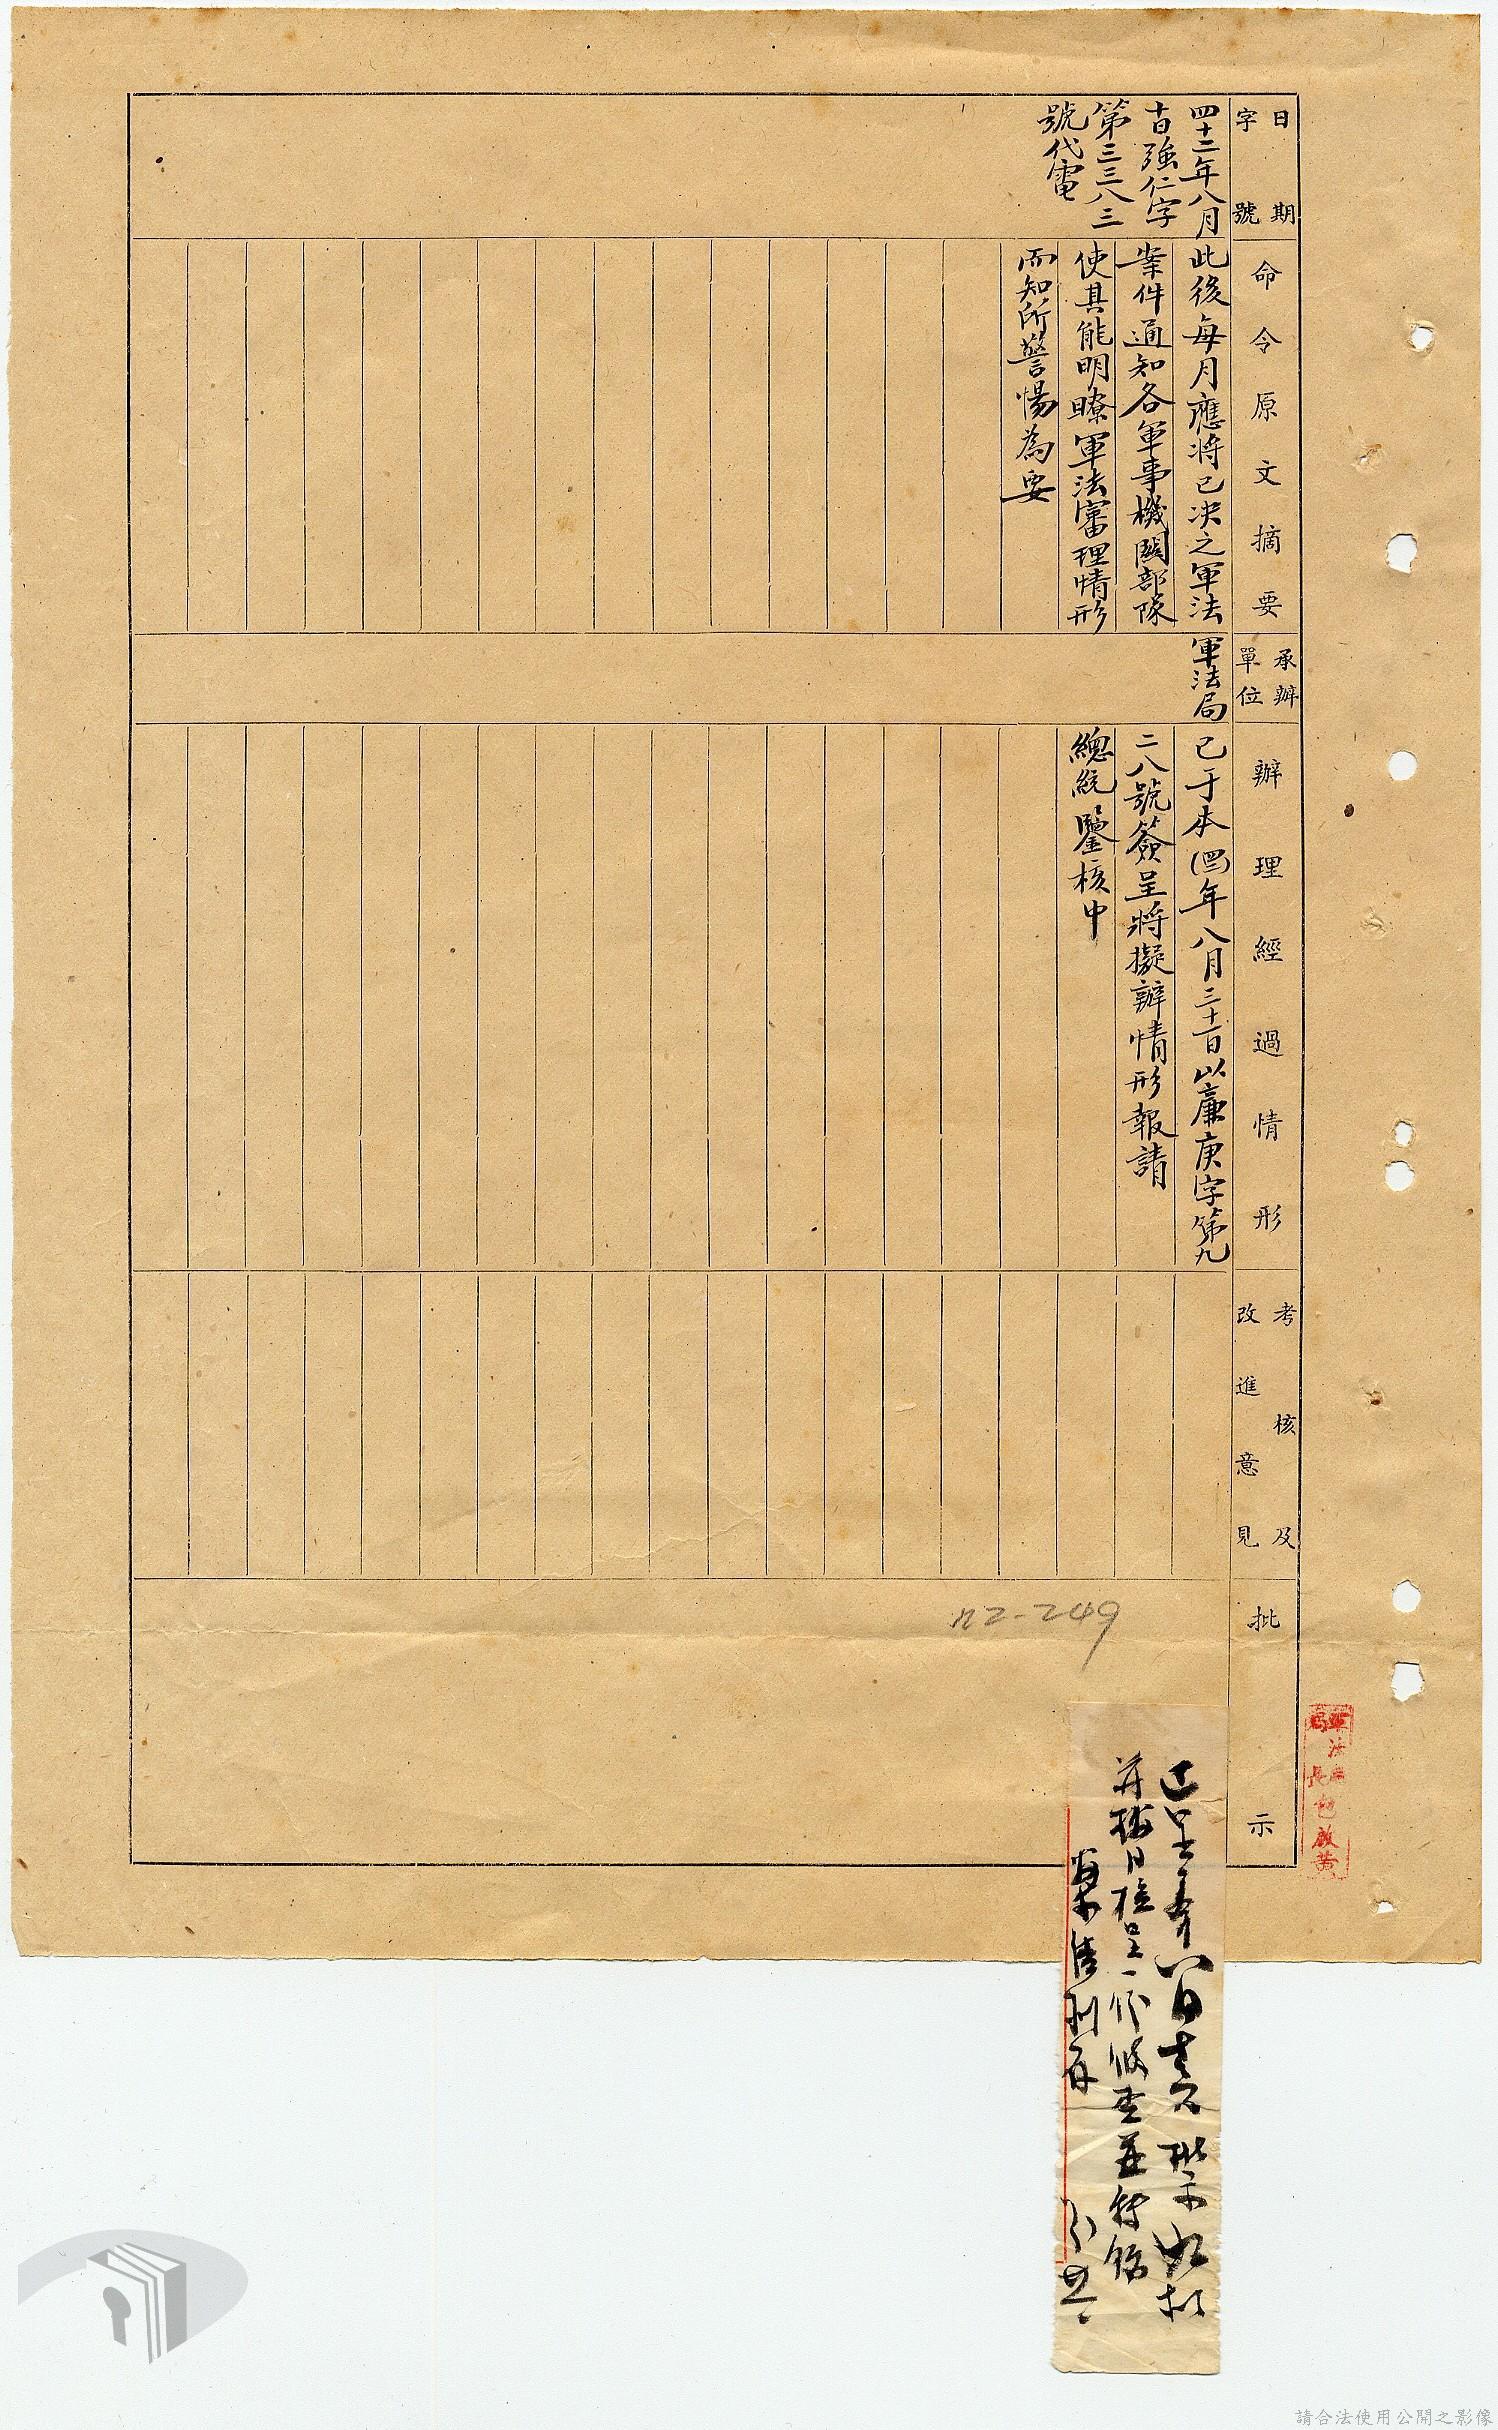 日期
字號
命令原文摘要
承辦
單位
辦理經過情形
考核及
改進意見
批示
四十二年八月
十日強仁字
第三三八三
號代電
此後每月應將已決之軍法
案件通知各軍事機關部隊
使其能明瞭軍法審理情形
而知所警惕為要
軍法局
已于本(四二)年八月三十一日以廉庚字第九
二八號簽呈將擬辦情形報請
總統鑒核中
112-249
已呈奉
批示如擬
并按月檢呈一份
軍法局
局長包啟黃
請合法使用公開之影像